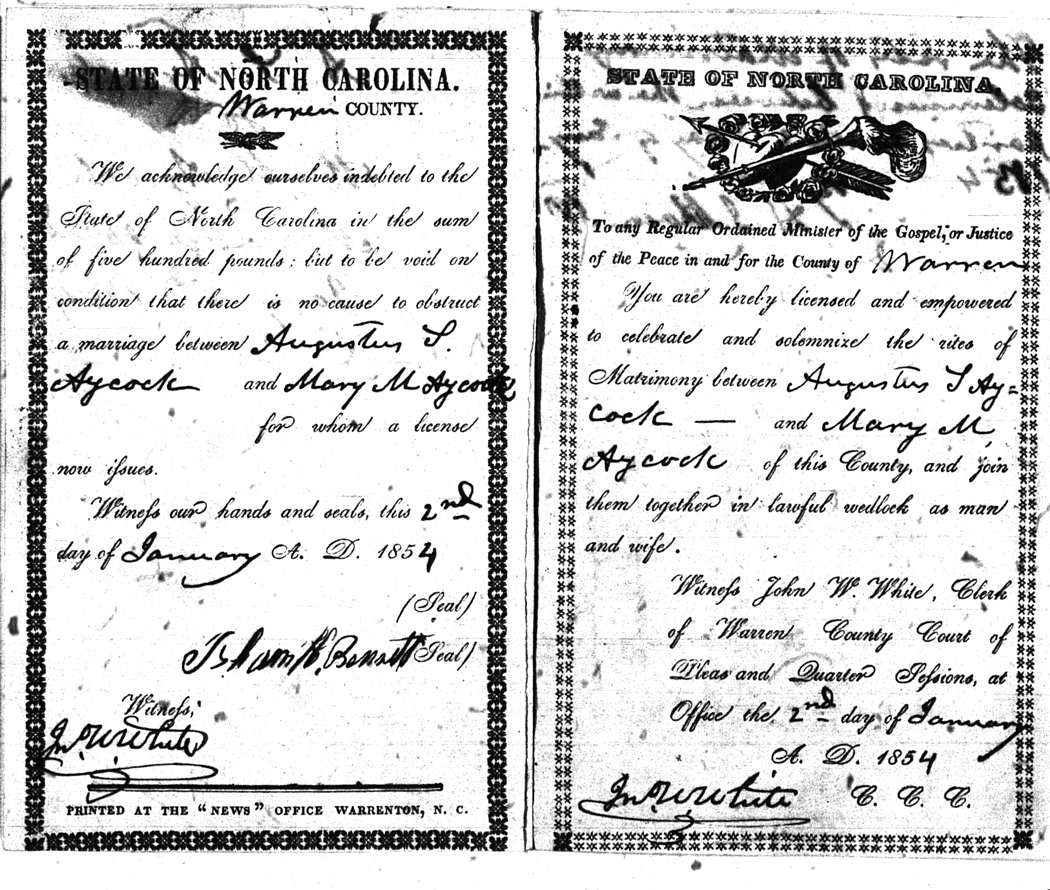 STATE OF NORTH CAROLINA.
Warren COUNTY.
We acknowledge ourselves indebted to the
State of North Carolina in the sum
of five hundred pounds: but to be void on
condition that there is no cause to obstruct
a marriage between Augustus S.
Aycock and Mary M Aycock
for whom a license
now issues.
Witness our hands and seals, this 2nd
day of January A. D. 1854
(Seal)
Isham H. Bennett (Seal)
Witness,
Jno W White
PRINTED AT THE "NEWS" OFFICE WARRENTON, N. C.
STATE OF NORTH CAROLINA.
To any Regular Ordained Minister of the Gospel, or Justice
of the Peace in and for the County of Warren
You are hereby licensed and empowered
to celebrate and solemnize the rites of
Matrimony between Augustus S Ay=
cock — and Mary M,
Aycock of this County, and join
them together in lawful wedlock as man
and wife.
Witness John W. White, Clerk
of Warren County Court of
Pleas and Quarter Sessions, at
Office the 2nd day of January
A. D. 1854
Jno W White C. C. C.